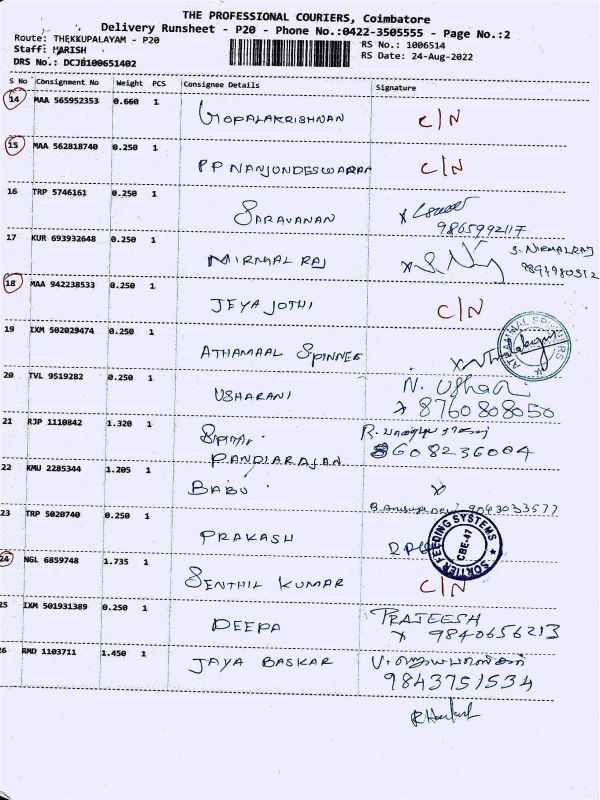 THE PROFESSIONAL COURIERS, Coimbatore
Delivery Runsheet - P20 - Phone No.:0422-3505555 - Page No.:2
Route: THEKKUPALAYAM - P20
RS No.: 1006514
Staff: HARISH
RS Date: 24-Aug-2022
DRS No.: DCJB100651402
S No Consignment No Weight PCS Consignee Details Signature
14 MAA 565952353 0.660 1 GOPALAKRISHNAN C/N
15 MAA 562818740 0.250 1 PP NANJONDESWARAN C/N
16 TRP 5746161 0.250 1 SARAVANAN
9865992117
17 KUR 693932648 0.250 1 MIRMAL RAJ S. NIRMALRAJ
18 MAA 942238533 0.250 1 JEYA JOTHI C/N
19 IXM 502029474 0.250 1 ATHAMAAL SPINNEE
20 TVL 9519282 0.250 1 USHARANI N. Usha
8760808050
21 RJP 1110842 1.320 1 PANDIARAJAN
8608236004
22 KMU 2285344 1.205 1 BABU
9043033577
23 TRP 5020740 0.250 1 PRAKASH
SORTIER FEEDING SYSTEMS
CBE-47
24 NGL 6859748 1.735 1 SENTHIL KUMAR C/N
25 IXM 501931389 0.250 1 DEEPA PRAJEESH
9840656213
26 RMD 1103711 1.450 1 JAYA BASKAR
9843751534